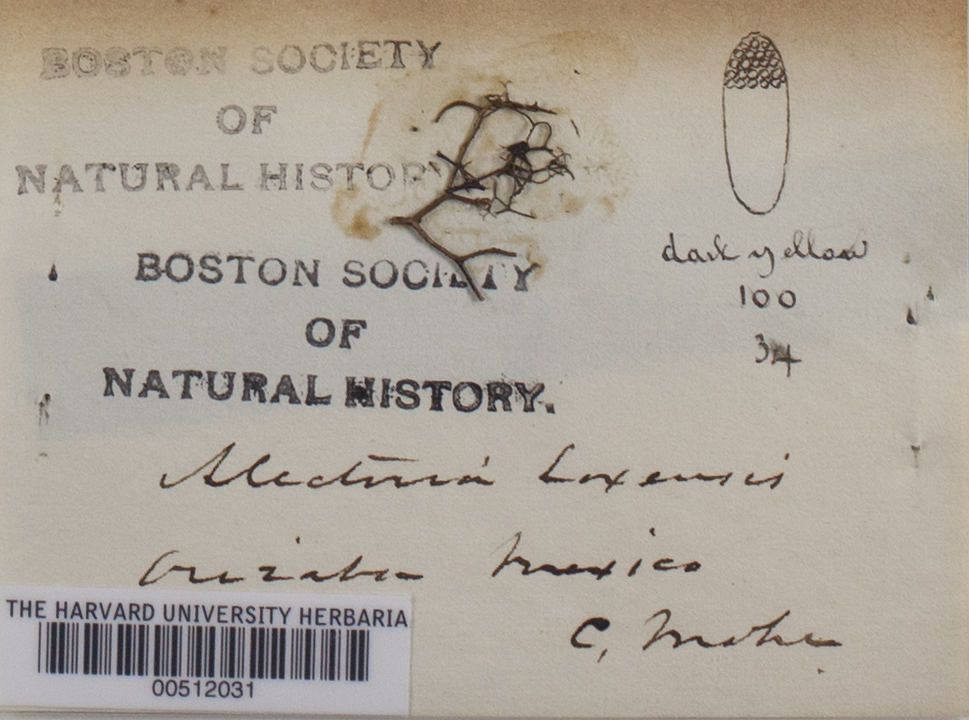 BOSTON SOCIETY
OF
NATURAL HISTORY
BOSTON SOCIETY
OF
NATURAL HISTORY.
dark yellow
100
34
Alectoria Loxensis
Orizaba Mexico
C. Mohr
THE HARVARD UNIVERSITY HERBARIA
00512031